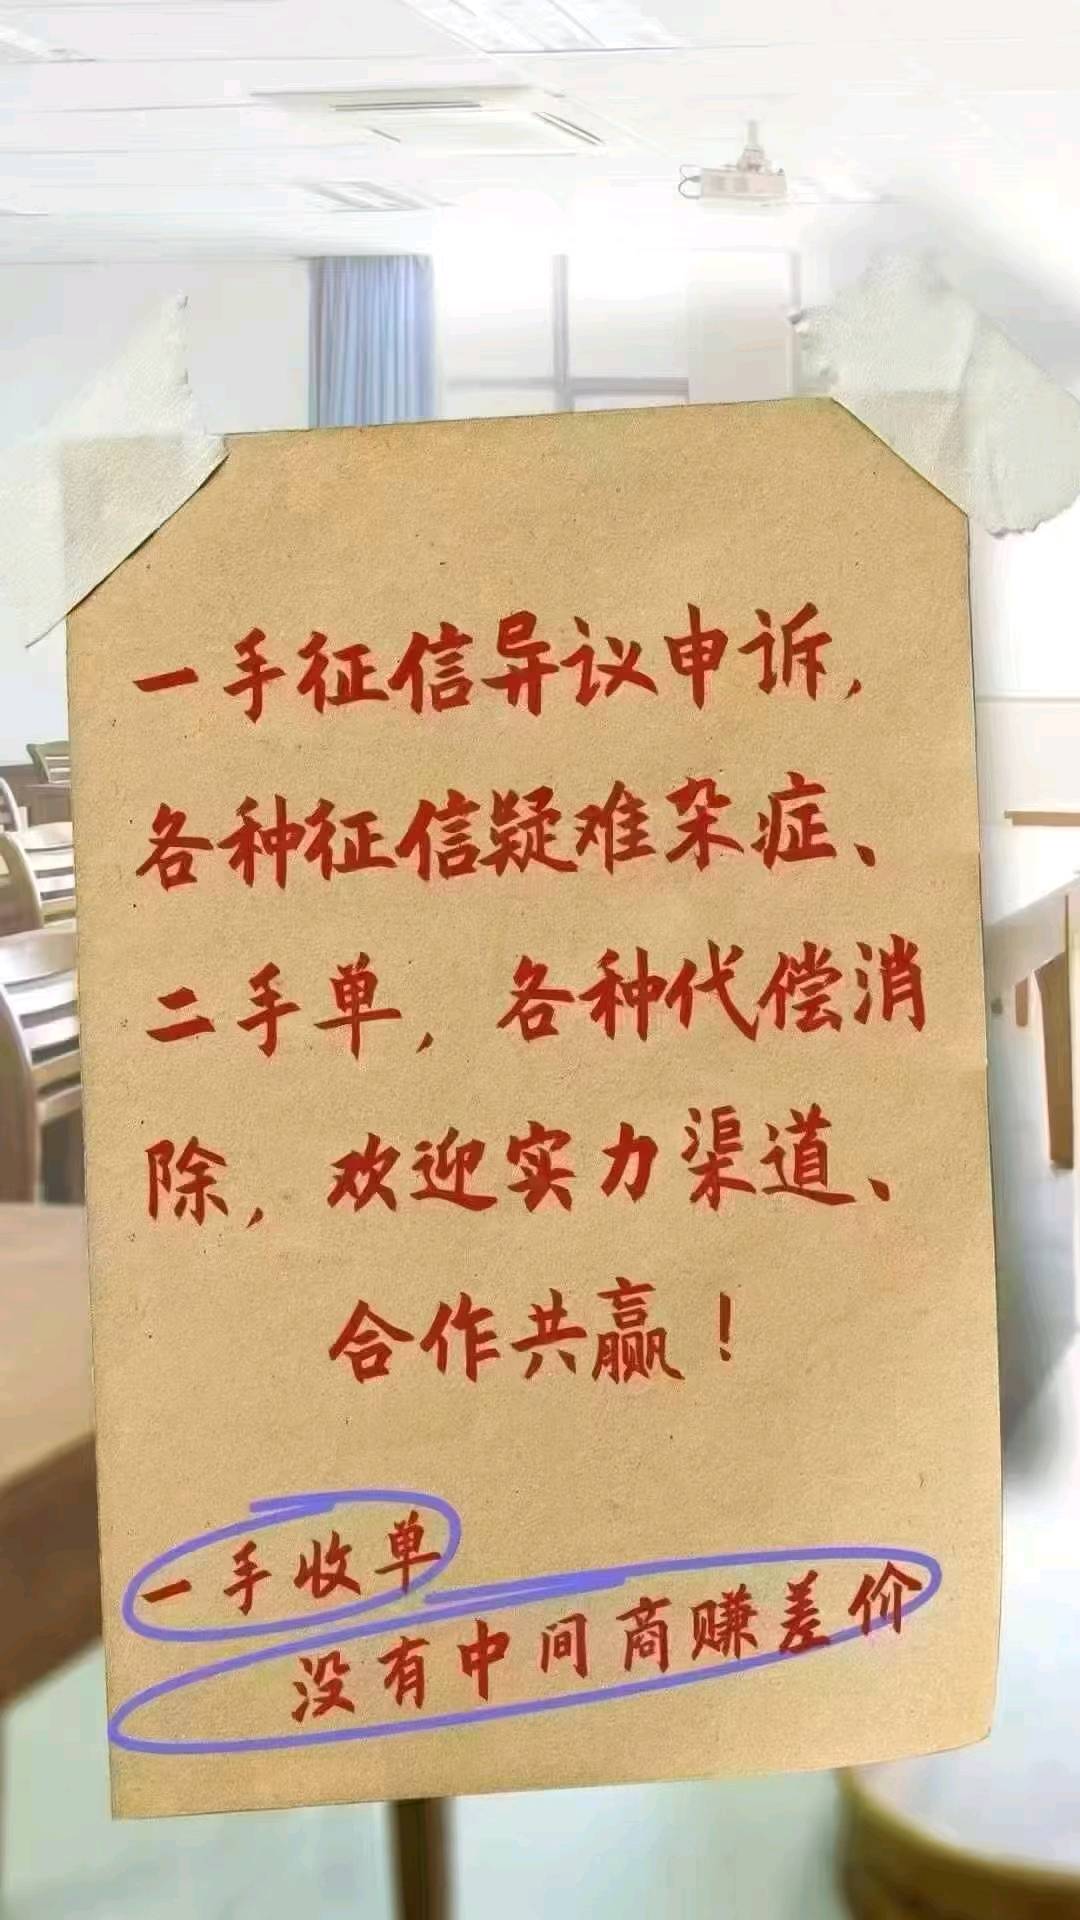 一手征信异议申诉,
各种征信疑难杂症、
二手单,各种代偿消
除,欢迎实力渠道、
合作共赢!
一手收单
没有中间商赚差价